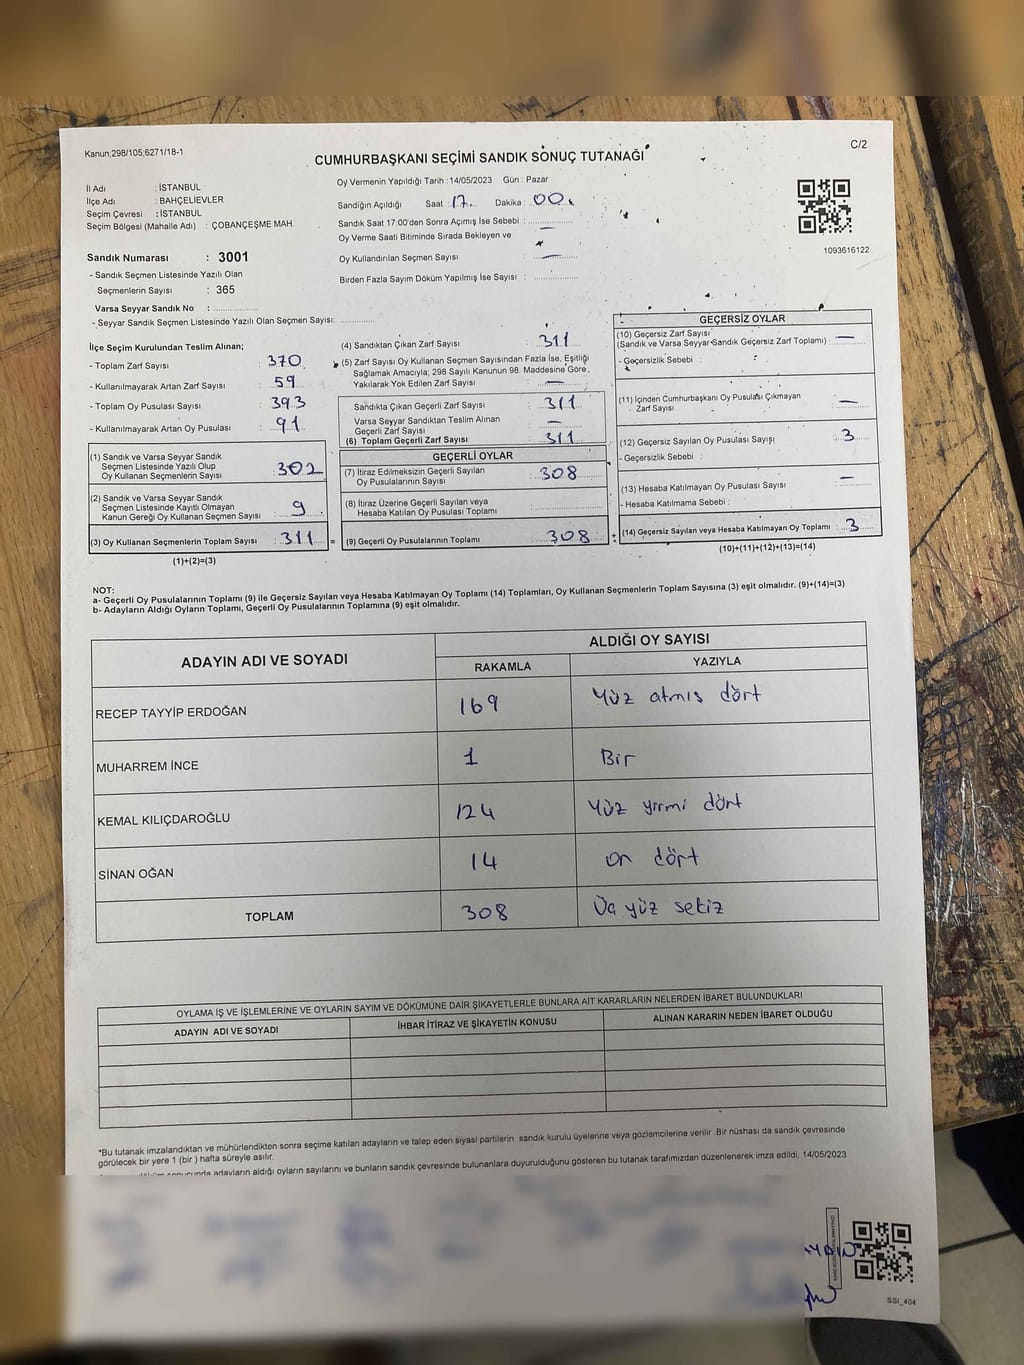 Kanun;298/105;6271/18-1
CUMHURBAŞKANI SEÇİMİ SANDIK SONUÇ TUTANAĞI
C/2
İl Adı : İSTANBUL
İlçe Adı : BAHÇELİEVLER
Seçim Çevresi : İSTANBUL
Seçim Bölgesi (Mahalle Adı) : ÇOBANÇEŞME MAH.
Oy Vermenin Yapıldığı Tarih :14/05/2023 Gün : Pazar
Sandığın Açıldığı Saat : 17. Dakika : 00.
Sandık Saat 17:00'den Sonra Açımış İse Sebebi :
Oy Verme Saati Bitiminde Sırada Bekleyen ve
Oy Kullandırılan Seçmen Sayısı : —
Birden Fazla Sayım Döküm Yapılmış İse Sayısı :
1093616122
Sandık Numarası : 3001
- Sandık Seçmen Listesinde Yazılı Olan
Seçmenlerin Sayısı : 365
Varsa Seyyar Sandık No :
- Seyyar Sandık Seçmen Listesinde Yazılı Olan Seçmen Sayısı:
İlçe Seçim Kurulundan Teslim Alınan;
- Toplam Zarf Sayısı : 370
- Kullanılmayarak Artan Zarf Sayısı : 59
- Toplam Oy Pusulası Sayısı : 393
- Kullanılmayarak Artan Oy Pusulası : 91
(1) Sandık ve Varsa Seyyar Sandık
Seçmen Listesinde Yazılı Olup
Oy Kullanan Seçmenlerin Sayısı : 302
(2) Sandık ve Varsa Seyyar Sandık
Seçmen Listesinde Kayıtlı Olmayan
Kanun Gereği Oy Kullanan Seçmen Sayısı : 9
(3) Oy Kullanan Seçmenlerin Toplam Sayısı : 311
(1)+(2)=(3)
(4) Sandıktan Çıkan Zarf Sayısı : 311
(5) Zarf Sayısı Oy Kullanan Seçmen Sayısından Fazla İse, Eşitliği
Sağlamak Amacıyla; 298 Sayılı Kanunun 98. Maddesine Göre,
Yakılarak Yok Edilen Zarf Sayısı : —
Sandıkta Çıkan Geçerli Zarf Sayısı : 311
Varsa Seyyar Sandıktan Teslim Alınan
Geçerli Zarf Sayısı : —
(6) Toplam Geçerli Zarf Sayısı : 311
GEÇERLİ OYLAR
(7) İtiraz Edilmeksizin Geçerli Sayılan
Oy Pusulalarının Sayısı : 308
(8) İtiraz Üzerine Geçerli Sayılan veya
Hesaba Katılan Oy Pusulası Toplamı :
(9) Geçerli Oy Pusulalarının Toplamı : 308
GEÇERSİZ OYLAR
(10) Geçersiz Zarf Sayısı
(Sandık ve Varsa Seyyar Sandık Geçersiz Zarf Toplamı) : —
- Geçersizlik Sebebi :
(11) İçinden Cumhurbaşkanı Oy Pusulası Çıkmayan
Zarf Sayısı : —
(12) Geçersiz Sayılan Oy Pusulası Sayısı : 3
- Geçersizlik Sebebi :
(13) Hesaba Katılmayan Oy Pusulası Sayısı : —
- Hesaba Katılmama Sebebi :
(14) Geçersiz Sayılan veya Hesaba Katılmayan Oy Toplamı : 3
(10)+(11)+(12)+(13)=(14)
NOT:
a- Geçerli Oy Pusulalarının Toplamı (9) ile Geçersiz Sayılan veya Hesaba Katılmayan Oy Toplamı (14) Toplamları, Oy Kullanan Seçmenlerin Toplam Sayısına (3) eşit olmalıdır. (9)+(14)=(3)
b- Adayların Aldığı Oyların Toplamı, Geçerli Oy Pusulalarının Toplamına (9) eşit olmalıdır.
ADAYIN ADI VE SOYADI
ALDIĞI OY SAYISI
RAKAMLA YAZIYLA
RECEP TAYYİP ERDOĞAN 169 Yüz atmış dört
MUHARREM İNCE 1 Bir
KEMAL KILIÇDAROĞLU 124 Yüz yirmi dört
SİNAN OĞAN 14 on dört
TOPLAM 308 Üç yüz sekiz
OYLAMA İŞ VE İŞLEMLERİNE VE OYLARIN SAYIM VE DÖKÜMÜNE DAİR ŞİKAYETLERLE BUNLARA AİT KARARLARIN NELERDEN İBARET BULUNDUKLARI
ADAYIN ADI VE SOYADI İHBAR İTİRAZ VE ŞİKAYETİN KONUSU ALINAN KARARIN NEDEN İBARET OLDUĞU
*Bu tutanak imzalandıktan ve mühürlendikten sonra seçime katılan adayların ve talep eden siyasi partilerin sandık kurulu üyelerine veya gözlemcilerine verilir. Bir nüshası da sandık çevresinde
görülecek bir yere 1 (bir ) hafta süreyle asılır.
sonucunda adayların aldığı oyların sayılarını ve bunların sandık çevresinde bulunanlara duyurulduğunu gösteren bu tutanak tarafımızdan düzenlenerek imza edildi. 14/05/2023
GSI_404